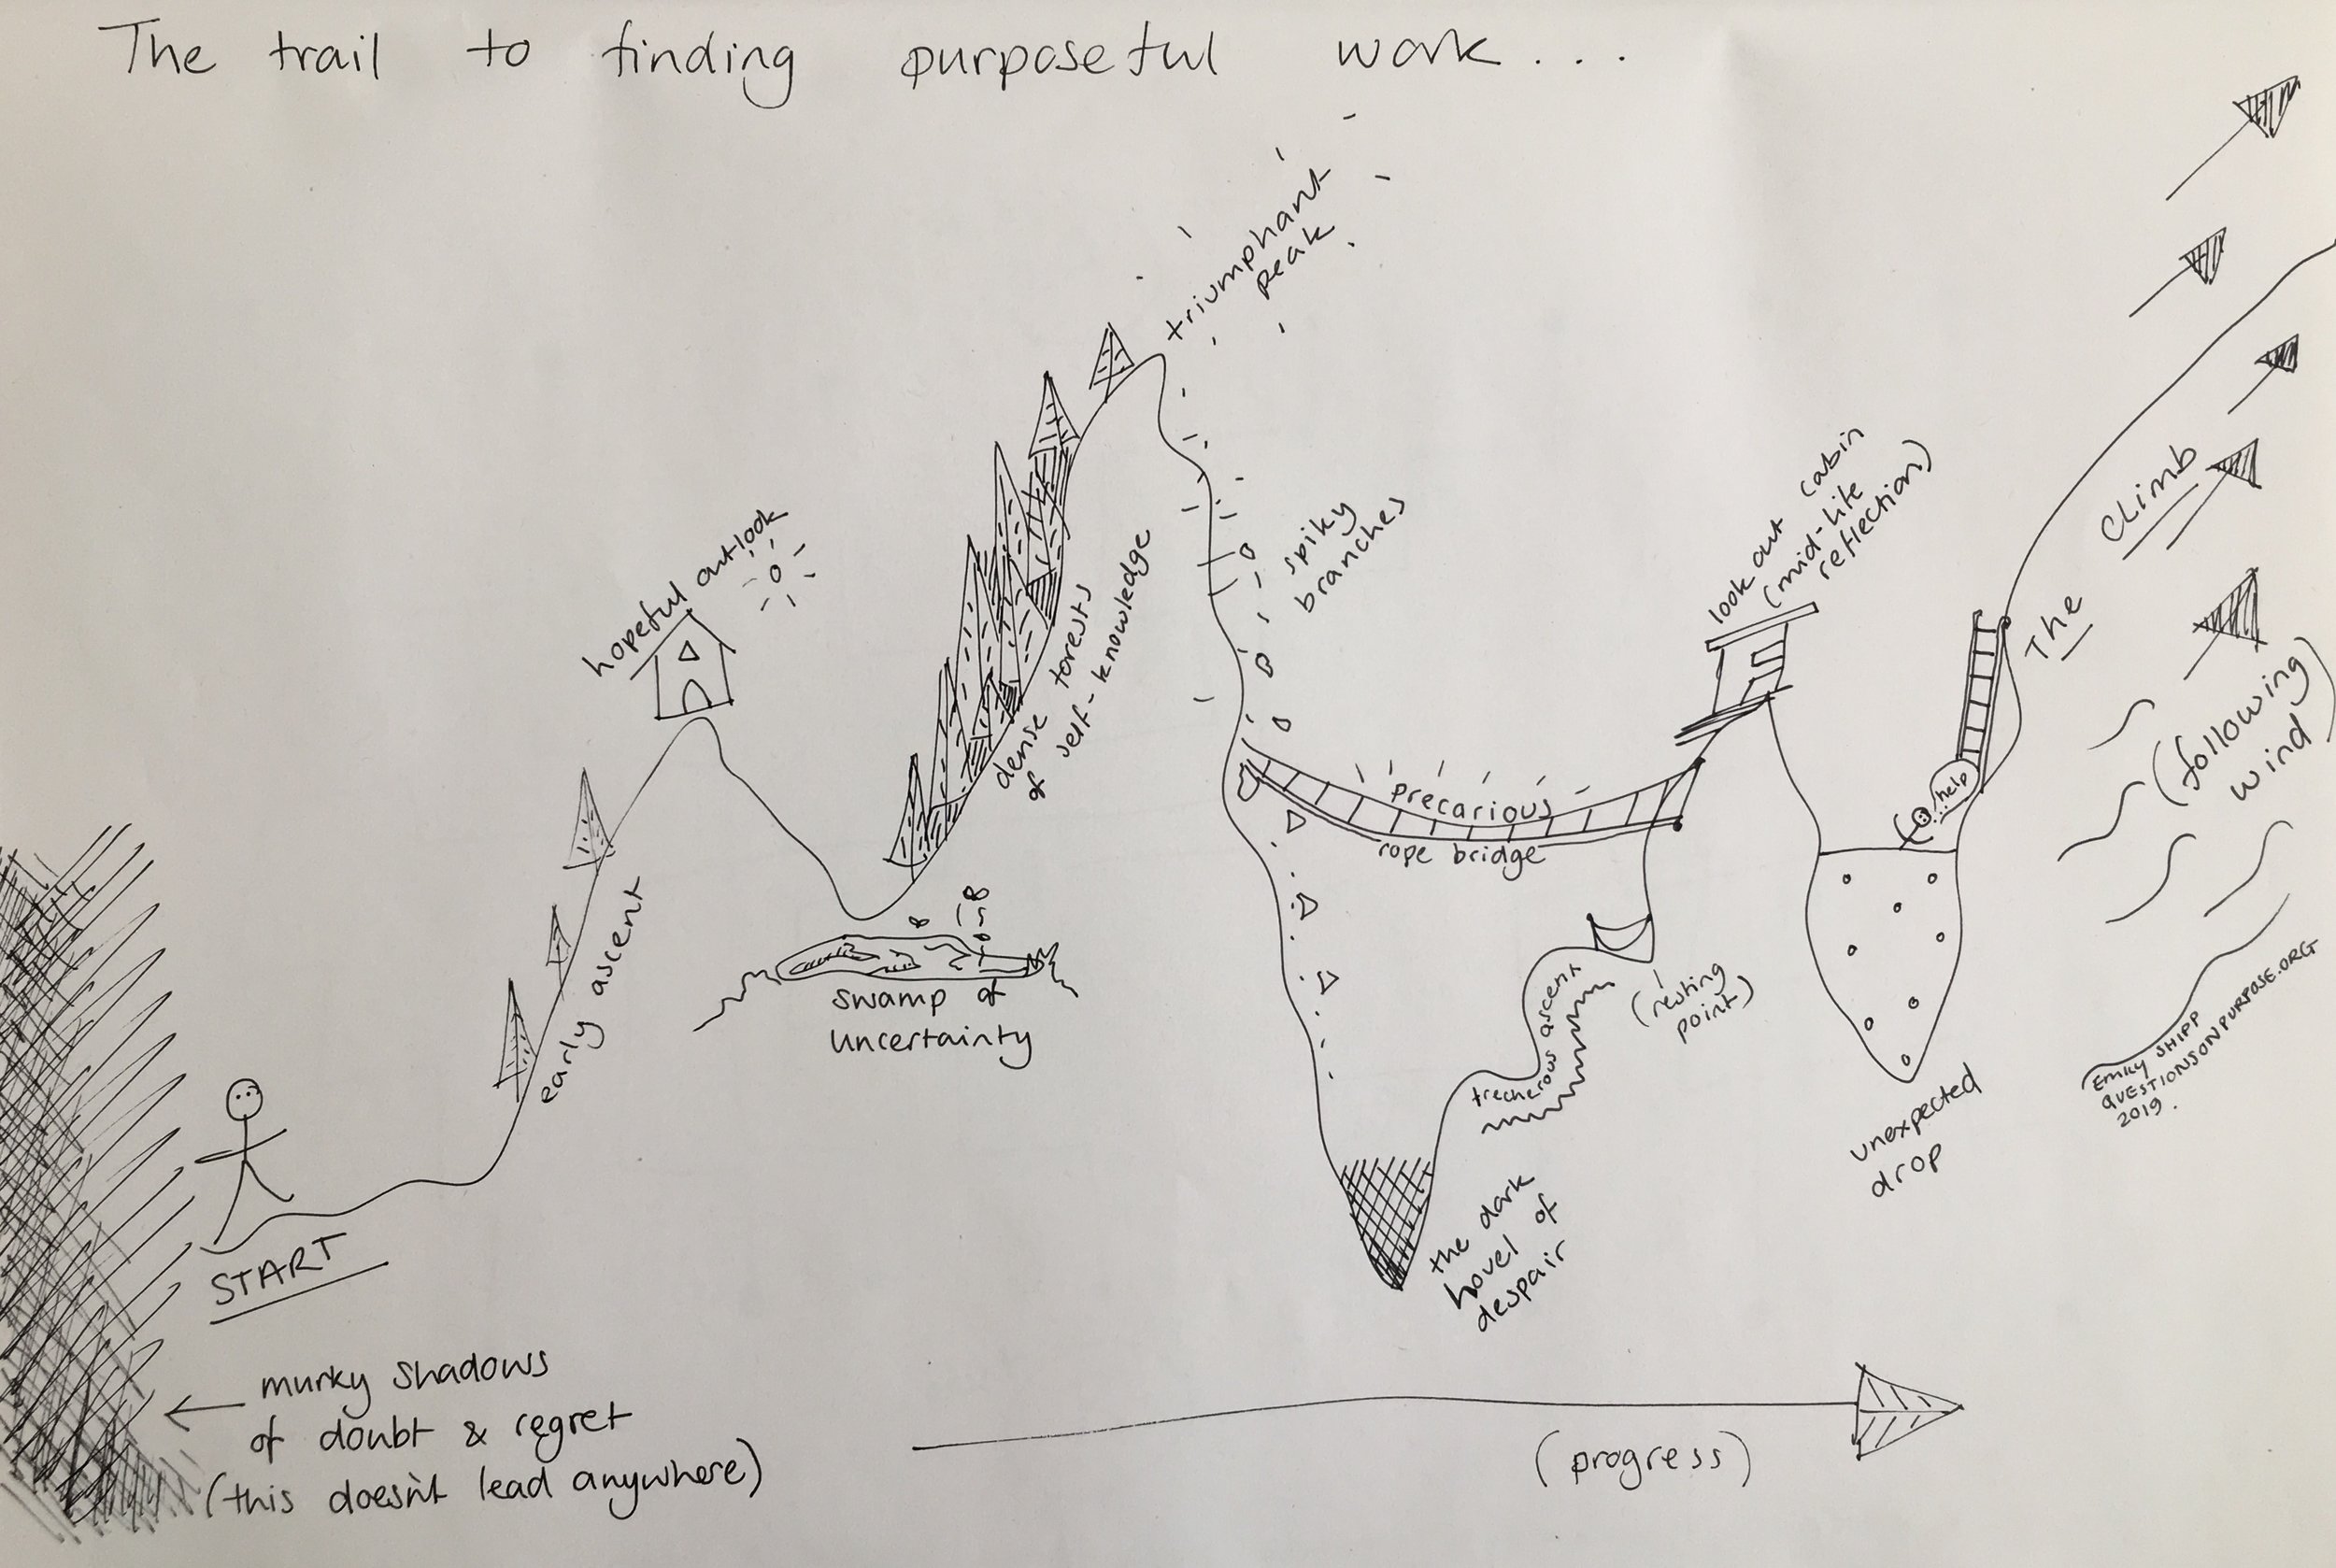 The trail to finding purposeful work...
hopeful outlook
early ascent
START
murky shadows
of doubt & regret
(this doesn't lead anywhere)
swamp of
uncertainty
dense forests
of self-knowledge
triumphant
peak
spiky
branches
precarious
rope bridge
the dark
hovel of
despair
trecherous ascent
(resting
point)
look out cabin
(mid-life
reflection)
unexpected
drop
help
The CLimb
(following
wind)
EMILY SHIPP
QUESTIONSONPURPOSE.ORG
2019.
(progress)